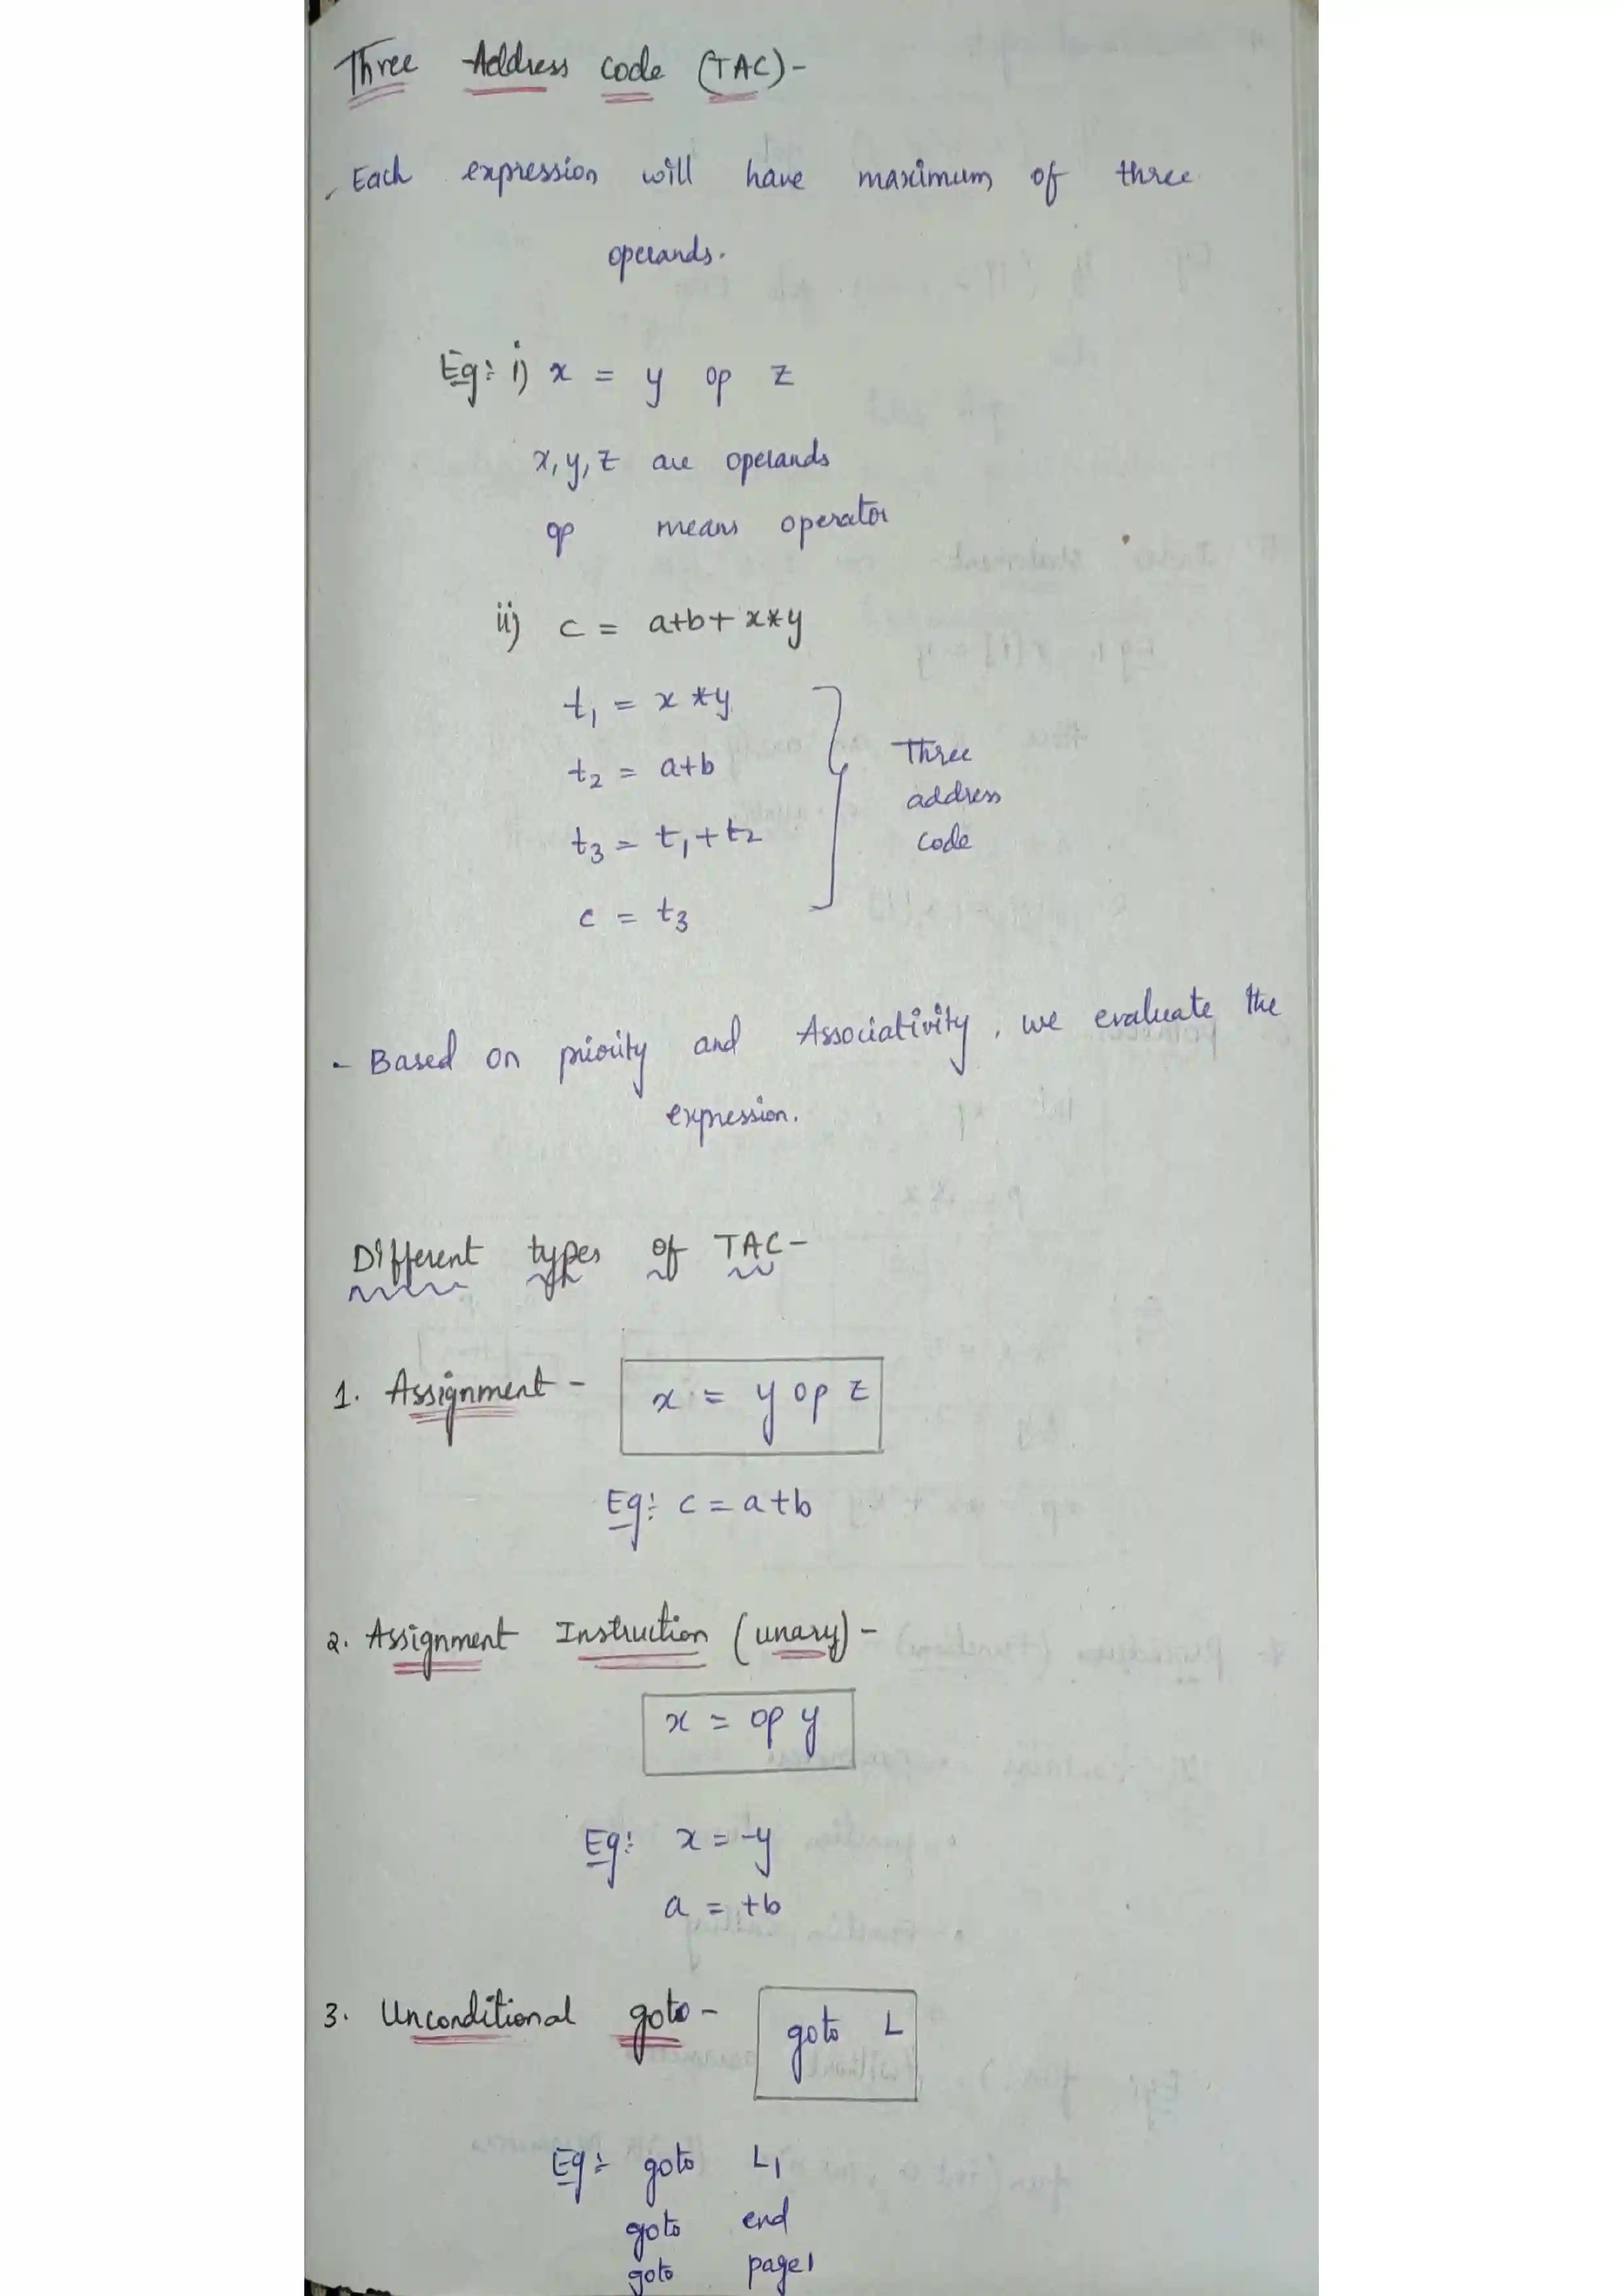 Three Address Code (TAC)-
Each expression will have maximum of three
operands.
Eg: i) x = y op z
x, y, z are operands
op means operator
ii) c = a+b+ x*y
t1 = x*y
t2 = a+b
t3 = t1+t2
c = t3
Three
address
code
- Based on priority and Associativity, we evaluate the
expression.
Different types of TAC-
1. Assignment - x = y op z
Eg: c = a+b
2. Assignment Instruction (unary) -
x = op y
Eg: x = -y
a = +b
3. Unconditional goto- goto L
Eg:- goto L1
goto end
goto page1